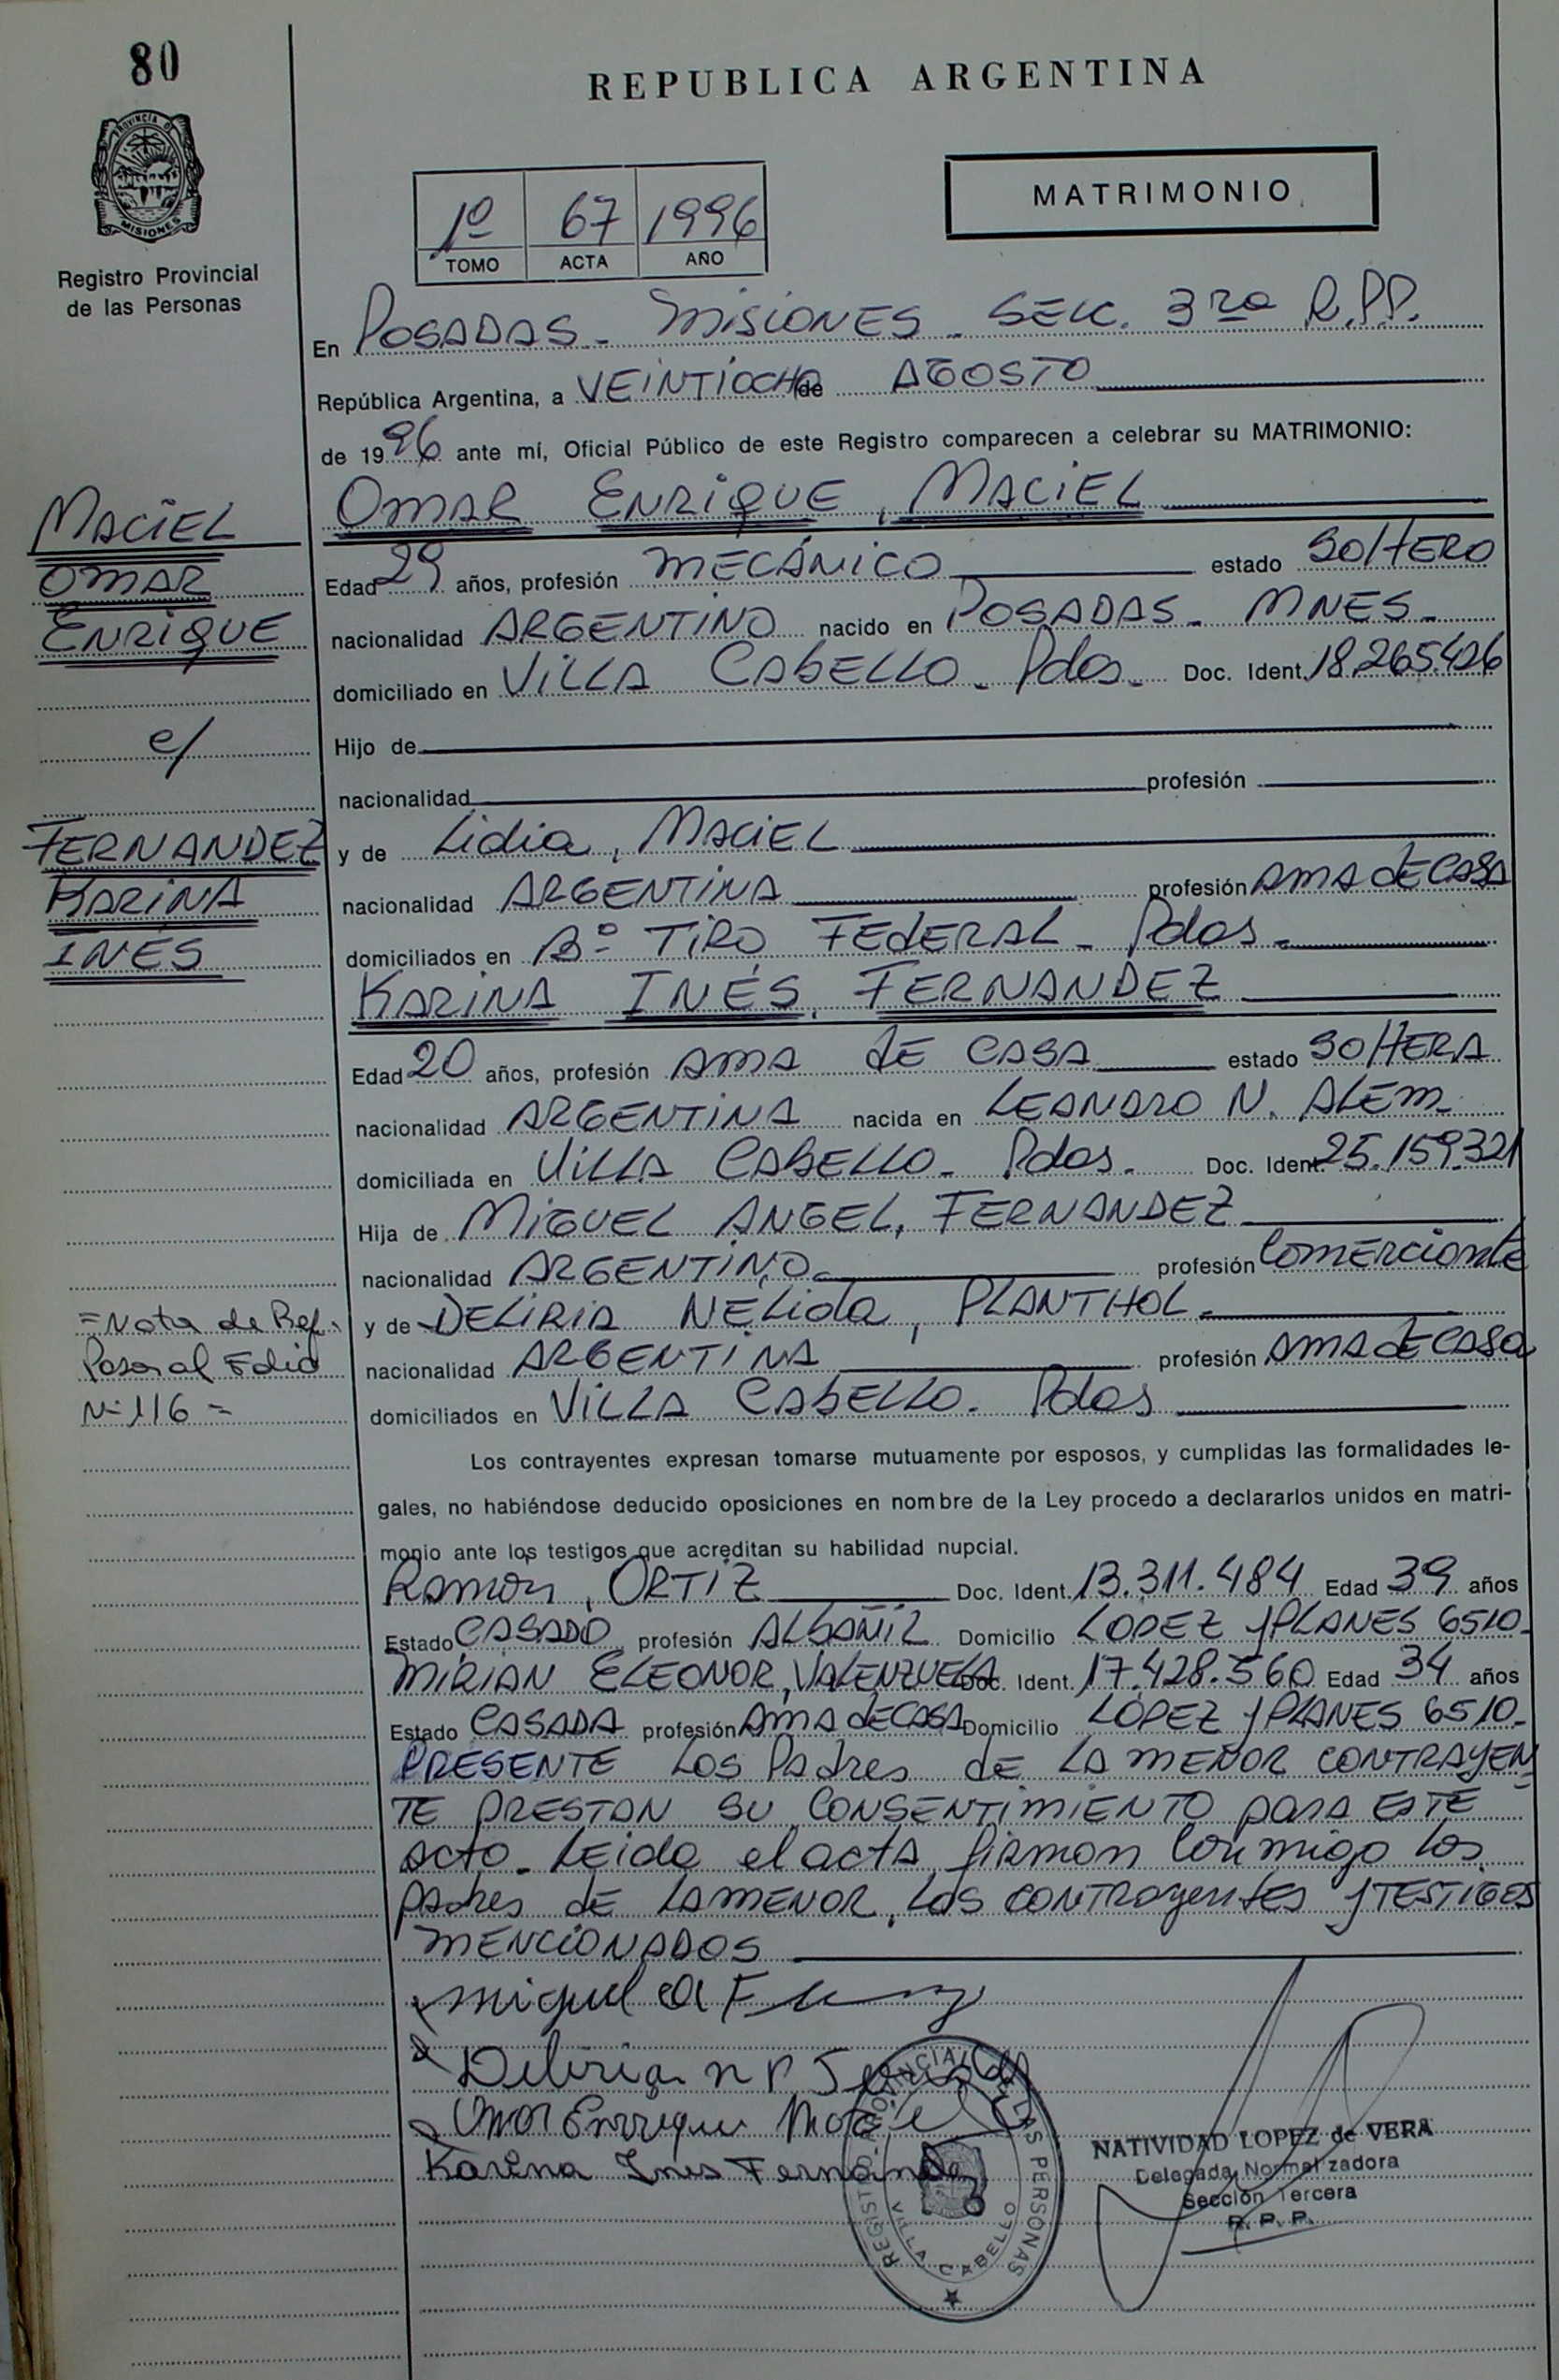 80
REPUBLICA ARGENTINA
PROVINCIA DE
MISIONES
Registro Provincial
de las Personas
1º 67 1996
TOMO ACTA AÑO
MATRIMONIO
En POSADAS - MISIONES - SECC. 3ra R.P.P.
República Argentina, a VEINTIOCHO de AGOSTO
de 1996 ante mí, Oficial Público de este Registro comparecen a celebrar su MATRIMONIO:
OMAR ENRIQUE, MACIEL
Edad 29 años, profesión MECÁNICO estado SOLTERO
nacionalidad ARGENTINO nacido en POSADAS - MNES -
domiciliado en VILLA CABELLO - Pdas - Doc. Ident. 18.265.426
Hijo de
nacionalidad profesión
y de Lidia, MACIEL
nacionalidad ARGENTINA profesión AMA dE CASA
domiciliados en Bº TIRO FEdERAL - Pdas -
KARINA INÉS, FERNANDEZ
Edad 20 años, profesión AMA dE CASA estado SOLTERA
nacionalidad ARGENTINA nacida en LEANDRO N. ALEM -
domiciliada en VILLA CABELLO - Pdas - Doc. Ident. 25.159.321
Hija de MIGUEL ANGEL, FERNANDEZ
nacionalidad ARGENTINO profesión COMERCIANTE
y de DELIRIA NÉLIDA, PLANTHOL
nacionalidad ARGENTINA profesión AMA dE CASA
domiciliados en VILLA CABELLO - Pdas
Los contrayentes expresan tomarse mutuamente por esposos, y cumplidas las formalidades le-
gales, no habiéndose deducido oposiciones en nombre de la Ley procedo a declararlos unidos en matri-
monio ante los testigos que acreditan su habilidad nupcial.
Ramon, ORTIZ Doc. Ident. 13.311.484 Edad 39 años
Estado CASADO profesión ALBAÑIL Domicilio LOPEZ y PLANES 6510-
MIRIAN ELEONOR, VALENZUELA Doc. Ident. 17.428.560 Edad 34 años
Estado CASADA profesión AMA dE CASA Domicilio LÓPEZ y PLANES 6510-
PRESENTE LOS Padres de LA MENOR CONTRAYEN
TE PRESTAN SU CONSENTIMIENTO para ESTE
acto - Leida el acta firman conmigo los
padres de LA MENOR, los contrayentes y TESTIGOS
MENCIONADOS
MACIEL
OMAR
ENRIQUE
c/
FERNANDEZ
KARINA
INÉS
=Nota de Ref.
Pasa al Folio
Nº 116 =
Miguel A F
Deliria n P
Omar Enrique Maciel
Karina Ines Fernandez
REGISTRO PROVINCIAL DE LAS PERSONAS
VILLA CABELLO
NATIVIDAD LOPEZ de VERA
Delegada Normalizadora
Sección Tercera
R. P. P.